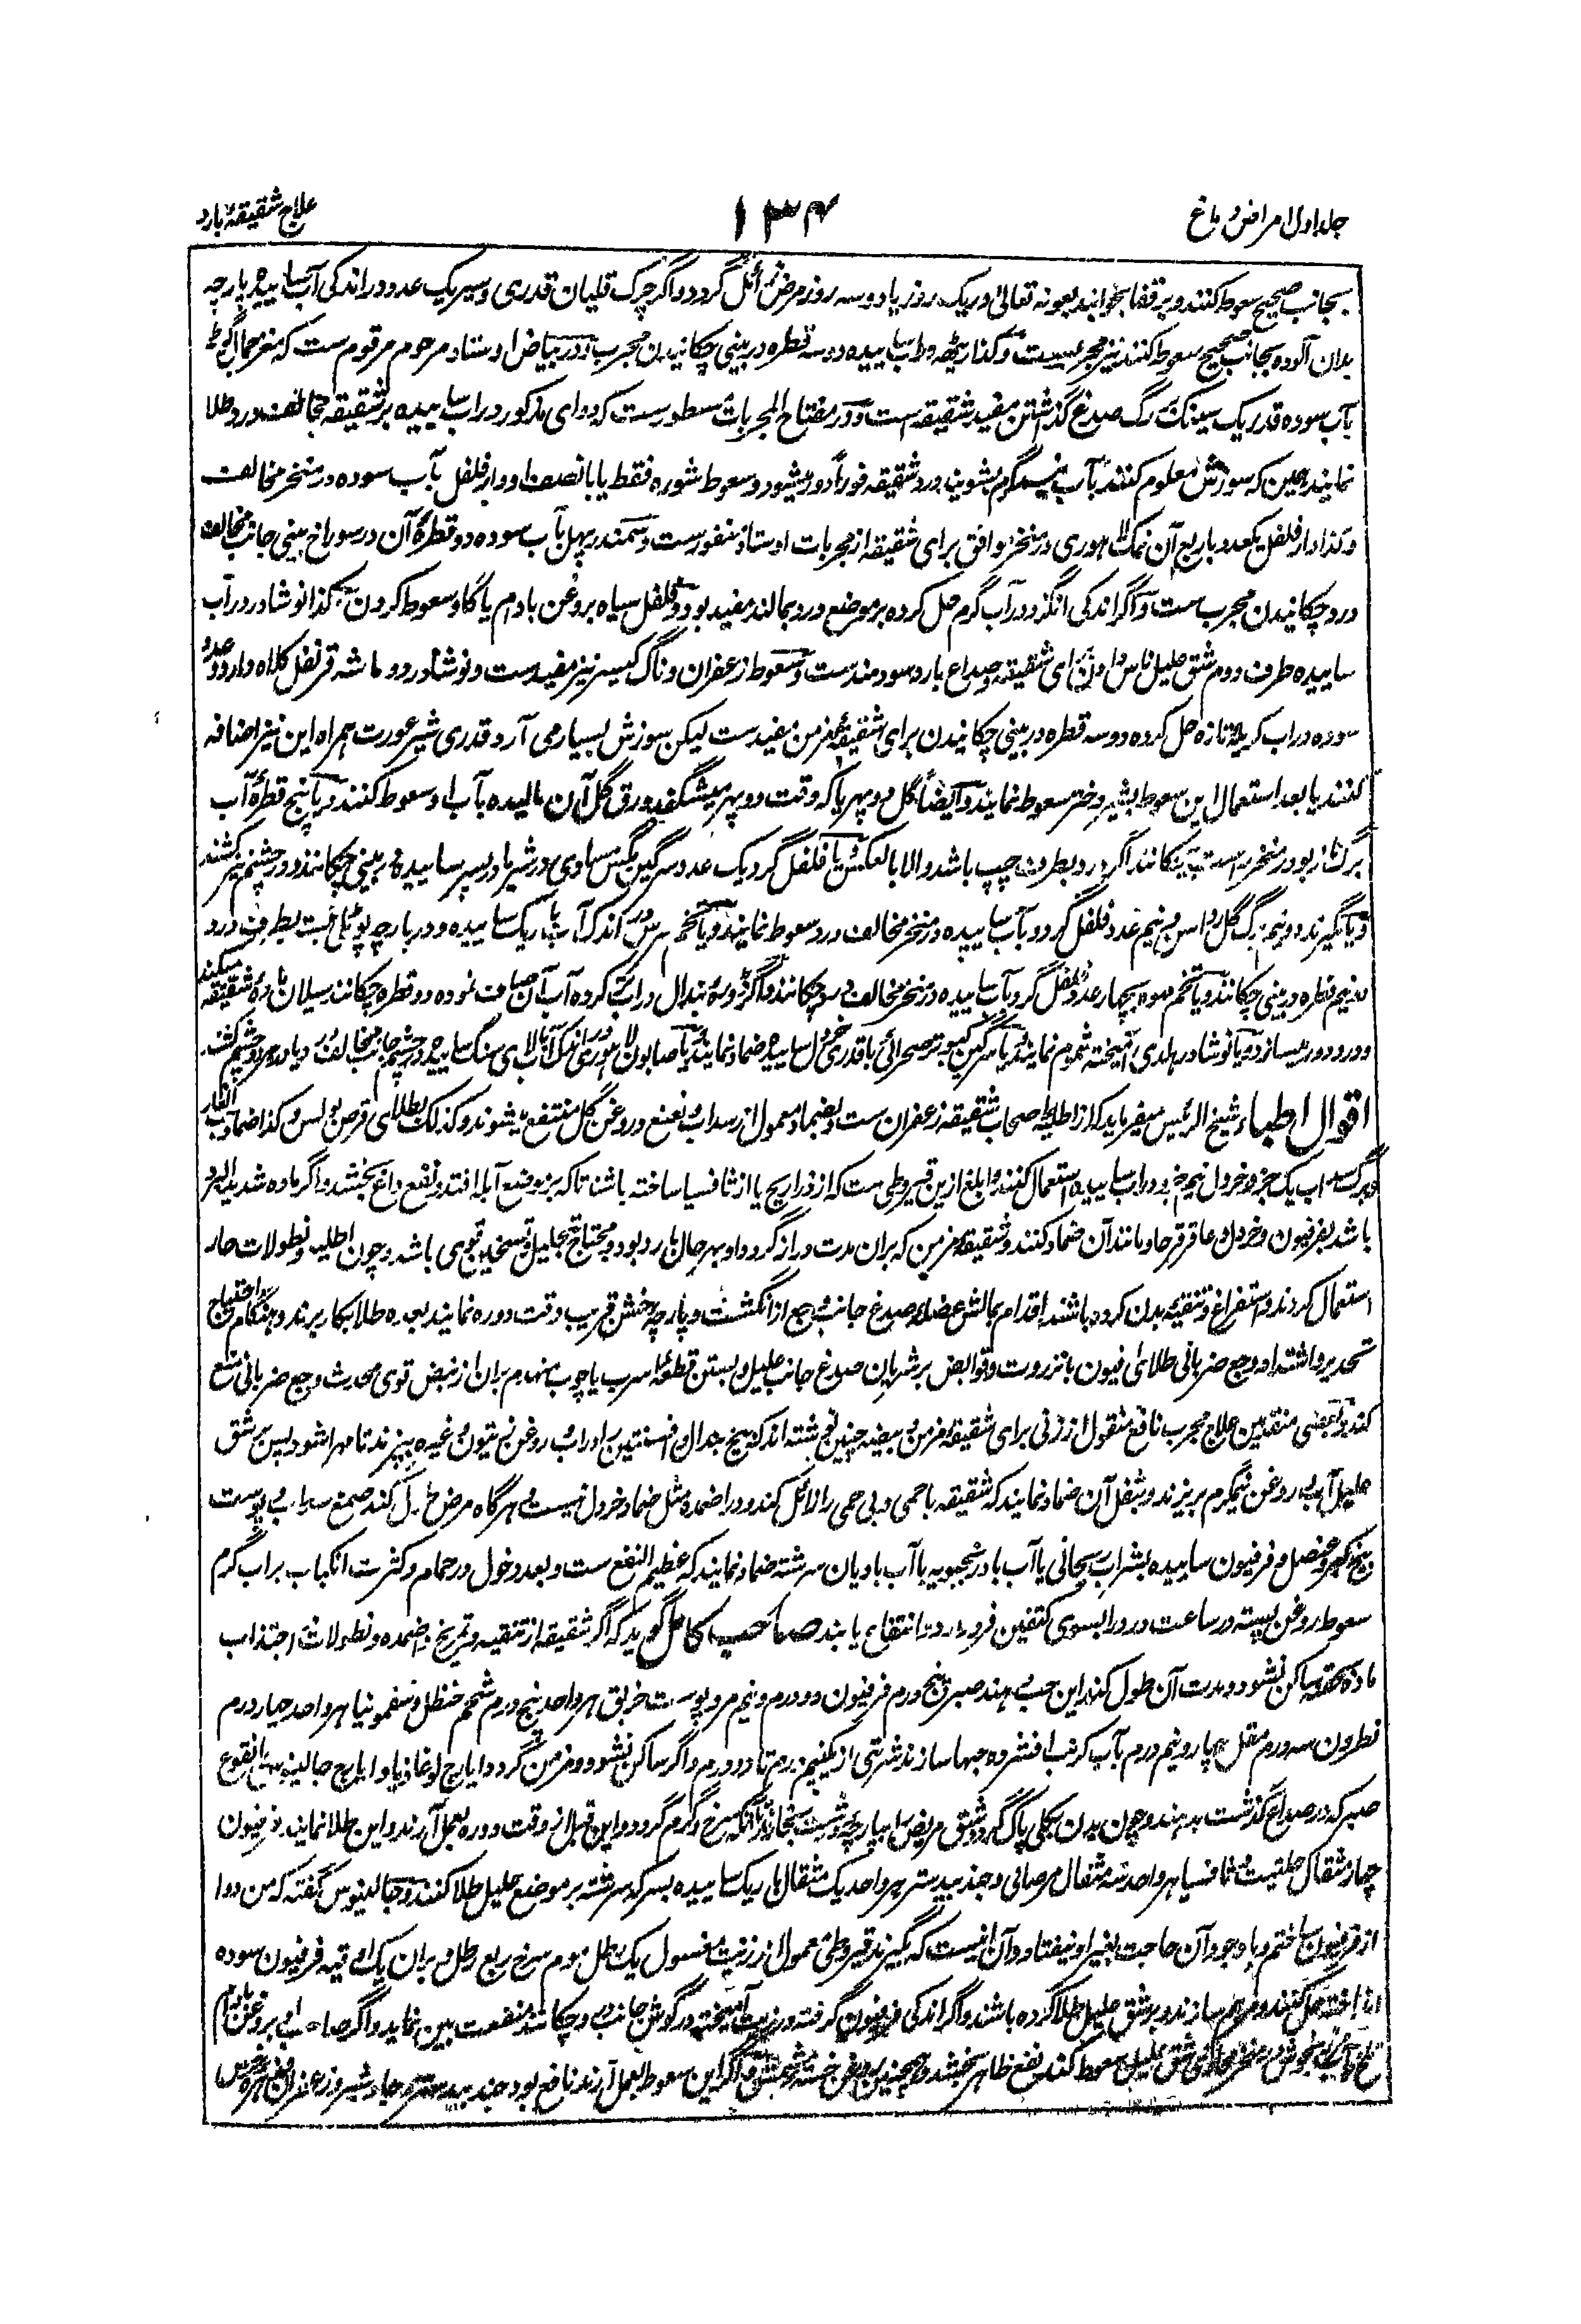 جلد اول امراض دماغ
۱۳۴
علاج شقیقۂ بارد
بجانب صحیح سعوط کنند و بر قفا بخوابند بعونه تعالیٰ در یک روز یا دو سه روز مرض زائل گردد و اگر چرک قلیان قدری و سیر یک عدد در اندکی آب ساییده پارچه
بدان آلوده بجانب صحیح سعوط کنند نیز مجربست و کذا ریٹھه در آب ساییده دو سه قطره در بینی چکانیدن مجرب و در بیاض اوستاد مرحوم مرقوم ست که مغز جمال گوٹه
بآب سوده قدر یک سینک بر رگ صدغ گذاشتن مفید شقیقه است و در مفتاح المجربات مسطورست که دوای مذکور در آب ساییده بر شقیقه مخالف درد طلا
نمایند همین که سوزش معلوم کنند بآب نیمگرم بشویند درد شقیقه فوراً دور میشود و سعوط شوره فقط یا با نصف او دارفلفل بآب سوده در منخر مخالف
و کذا دارفلفل یکعدد با ربع آن نمک لاهوری در منخر موافق برای شقیقه از مجربات اوستاد مغفورست و سمندر پهل بآب سوده دو قطرۂ آن در سوراخ بینی جانب مخالف
درد چکانیدن مجرب ست و اگر اندکی انگزد در آب گرم حل کرده بر موضع درد بمالند مفید بود و فلفل سیاه بروغن بادام یا گاو سعوط کردن و کذا نوشادر در آب
ساییده طرف دوم شق علیل ناس دادن برای شقیقه و صداع بارد سودمندست و سعوط زعفران و ناگ کیسر نیز مفیدست و نوشادر دو ماشه قرنفل کلاه دار دو عدد
سوده در آب کریله تازه حل کرده دو سه قطره در بینی چکانیدن برای شقیقۂ مزمن مفیدست لیکن سوزش بسیار می آرد قدری شیر عورت همراه این نیز اضافه
کنند یا بعد استعمال این سعوط بشیر دختر سعوط نمایند و ایضاً گل دوپهریا که وقت دوپهر میشگفد ورق گل آن مالیده بآب او سعوط کنند و یا پنج قطرۂ آب
برگ ناز بو در منخر راست بچکانند اگر درد بطرف چپ باشد و الا بالعکس و یا فلفل گرد یک عدد سرگین مگس مساوی در شیر مادر پسر ساییده در بینی چکانند و در چشم نیز کشند
و یا بگیرند دو نیم برگ گل و نیم عدد فلفل گرد و بآب ساییده در منخر مخالف درد سعوط نمایند و یا تخم سرس در اندک آب باریک ساییده و در پارچه پوٹلی بسته بطرف درد
دو نیم قطره در بینی چکانند و یا تخم بچهار عدد فلفل گرد بآب ساییده در منخر مخالف درد چکانند و اگر ڈوڈۂ بندال در آب تر کرده آب آن صاف نموده دو قطره چکانند سیلان مادۂ شقیقه میکند
و درد دور میسازد و یا نوشادر بهلدی آمیخته شموم نمایند و یا سرگین کبوتر صحرائی با قدری خردل ساییده ضماد نمایند و یا صابون لاهوری در اندک آب بالای سنگ ساییده در چشم جانب مخالف درد یا در هر دو چشم کشند
اقوال اطباء شیخ الرئیس میفرماید که از اطلیۂ اصحاب شقیقه زعفران ست و بضماد معمول از سداب و نعنع و روغن گل منتفع میشوند و کذلک بطلای قرص بولس و کذا ضماد حب الغار
و برگ سداب یک جزو خردل نیم جزو در آب ساییده استعمال کنند و ابلغ ازین قیروطی ست که از ذراریح یا از ثافسیا ساخته باشند تا که بر موضع آبله افتد و نفع داغ بخشد و اگر ماده شدید البرد
باشد بفرفیون و خردل و عاقرقرحا و مانند آن ضماد کنند و شقیقۂ مزمن که بران مدت دراز گردد او بهر حال بارد بود و محتاج تحلیل و تسخین قوی باشد و چون اطلیه و نطولات حار
استعمال کردند و استفراغ و تنقیه بدن کرده باشند اقدام بمالش عضلۂ صدغ جانب وجع از انگشت و پارچۂ خشن قریب وقت دوره نمایند بعده طلا بکار برند و هنگام احتیاج
تخدیر و اشتداد وجع ضربانی طلای افیون با نزروت و قوابض بر شریان صدغ جانب علیل و بستن قطعۂ اسرب یا چوب منهدم بران از نبض قوی محدث وجع ضربانی منع
کند و بعضی متقدمین علاج مجرب نافع منقول از زنی برای شقیقۂ مزمن و بیضه چنین نوشته اند که بیخ و افسنتین برابر در آب و روغن زیتون و غیره بپزند تا مهرا شود پس بر شق
علیل آب و روغن نیمگرم بریزند و بثفل آن ضماد نمایند که شقیقه با حمی و بی حمی را زائل کند و در اضمده مثل ضماد خردل نیست و هرگاه مرض طول کند صمغ سداب بری و پوست
بیخ کبر و عنصل و فرفیون ساییده بشراب ریحانی یا آب بادرنجبویه یا آب بادیان سرشته ضماد نمایند که عظیم النفع ست و بعد دخول در حمام و کثرت انکباب بر آب گرم
سعوط روغن پسته در ساعت درد را بسوی کتفین فرود آرد و انتفاع یابند صاحب کامل گوید که اگر شقیقه از تنقیه و تمریخ و اضمده و نطولات و اجتذاب
ماده بحقنه ساکن نشود و مدت آن طول کند این حب بدهند صبر پنج درم فرفیون دو درم و نیم مر و پوست خربق هر واحد پنج درم شحم حنظل و سقمونیا هر واحد چهار درم
نطرون سه درم مقل چهار و نیم درم بآب کرنب افشرده حبها سازند شربتی از یکنیم درم تا دو درم و اگر ساکن نشود و مزمن گردد ایارج لوغاذیا و ایارج جالینوس و نقوع
صبر که در صداع گذشت بدهند و چون بدن بکلی پاک گردد شق مریض را بپارچۂ درشت بخارند تا آنکه سرخ و گرم گردد و این قبل از وقت دوره بعمل آرند و این طلا نمایند فرفیون
چهار مثقال حلتیت و ثافسیا هر واحد سه مثقال مر صافی و جندبیدستر هر واحد یک مثقال باریک ساییده بسرکه سرشته بر موضع علیل طلا کنند و جالینوس گفته که من دوا
از فرفیون ساختم و باوجود آن حاجت بغیر او نیفتاد و آن اینست که بگیرند قیروطی معمول از زیت مغسول یک رطل موم سرخ ربع رطل و بران یک اوقیه فرفیون سوده
انداخته حل کنند و مرهم سازند و بر شق علیل طلا کرده باشند و اگر اندکی فرفیون گرفته در زیت آمیخته در گوش جانب درد چکانند منفعت بین نماید و اگر صاحب او بروغن بادام
تلخ در منخر محاذی شق علیل سعوط کند نفع ظاهر بخشد و همچنین بروغن خستۂ مشمش و اگر این سعوط بعمل آرند نافع بود جندبیدستر جاوشیر و زعفران